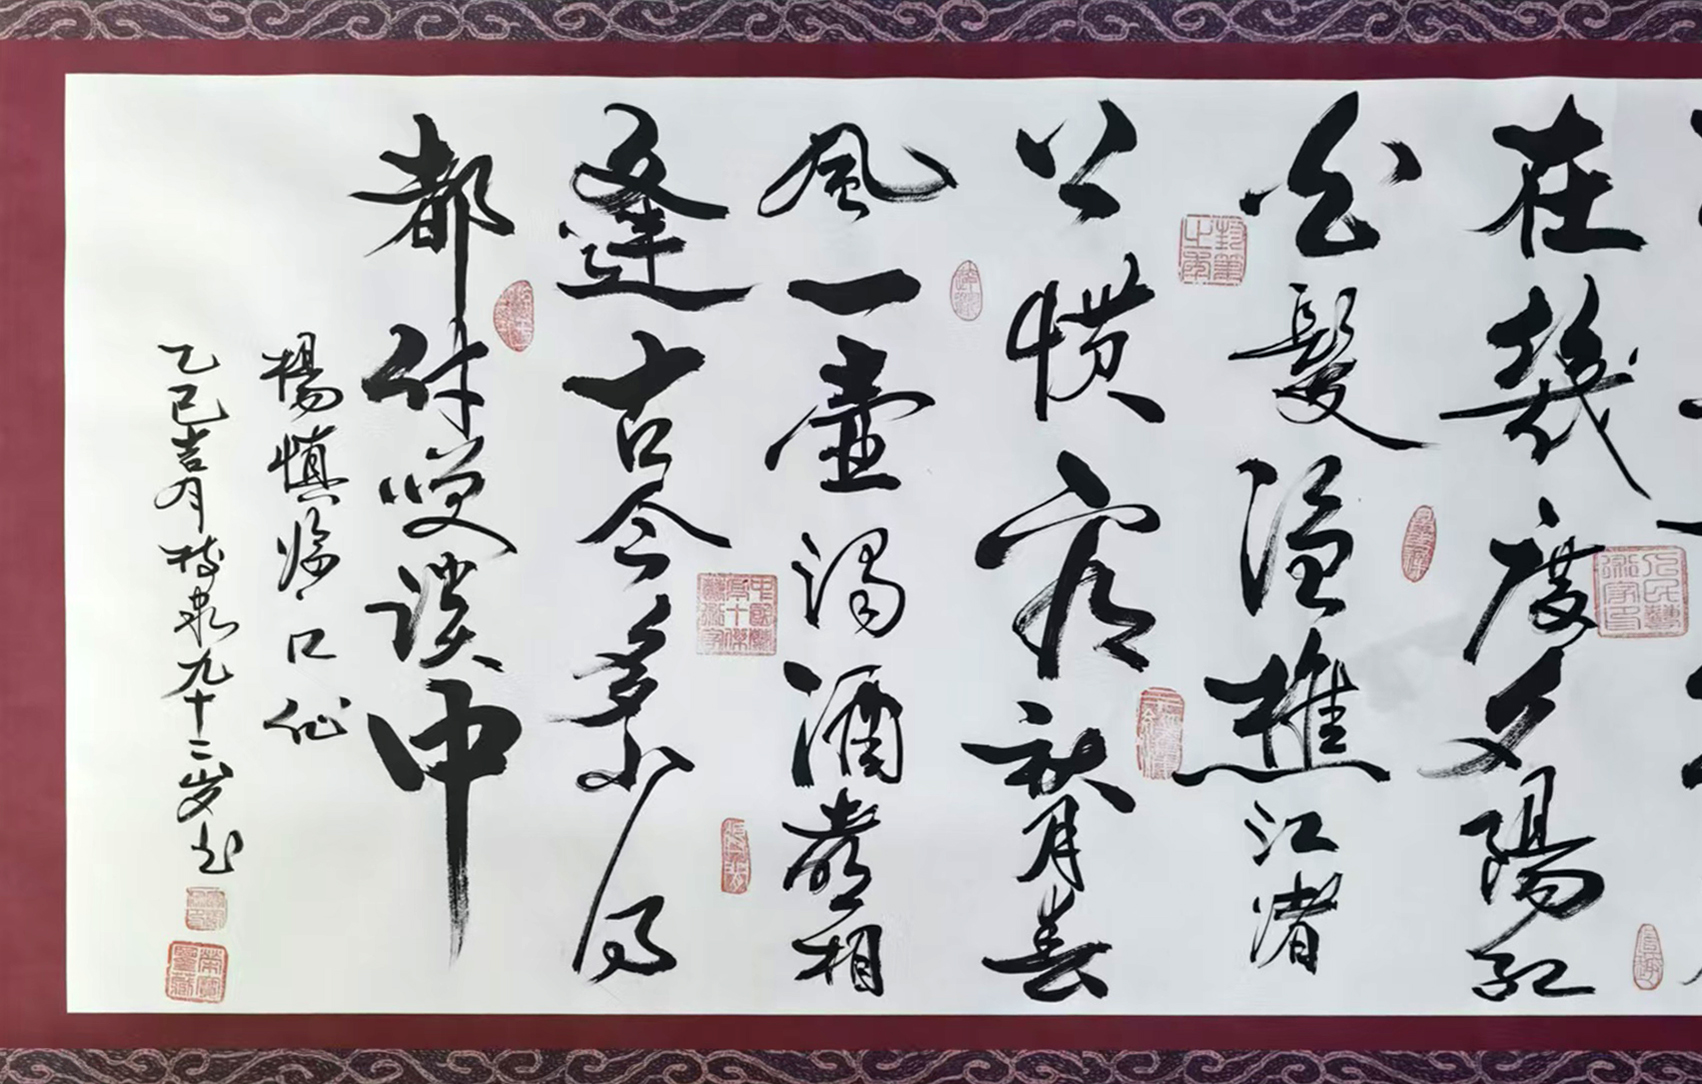 在幾度夕陽紅
白髮渔樵江渚
上惯看秋月春
風一壺濁酒喜相
逢古今多少事
都付笑談中
楊慎临江仙
乙巳吉月 九十二岁书